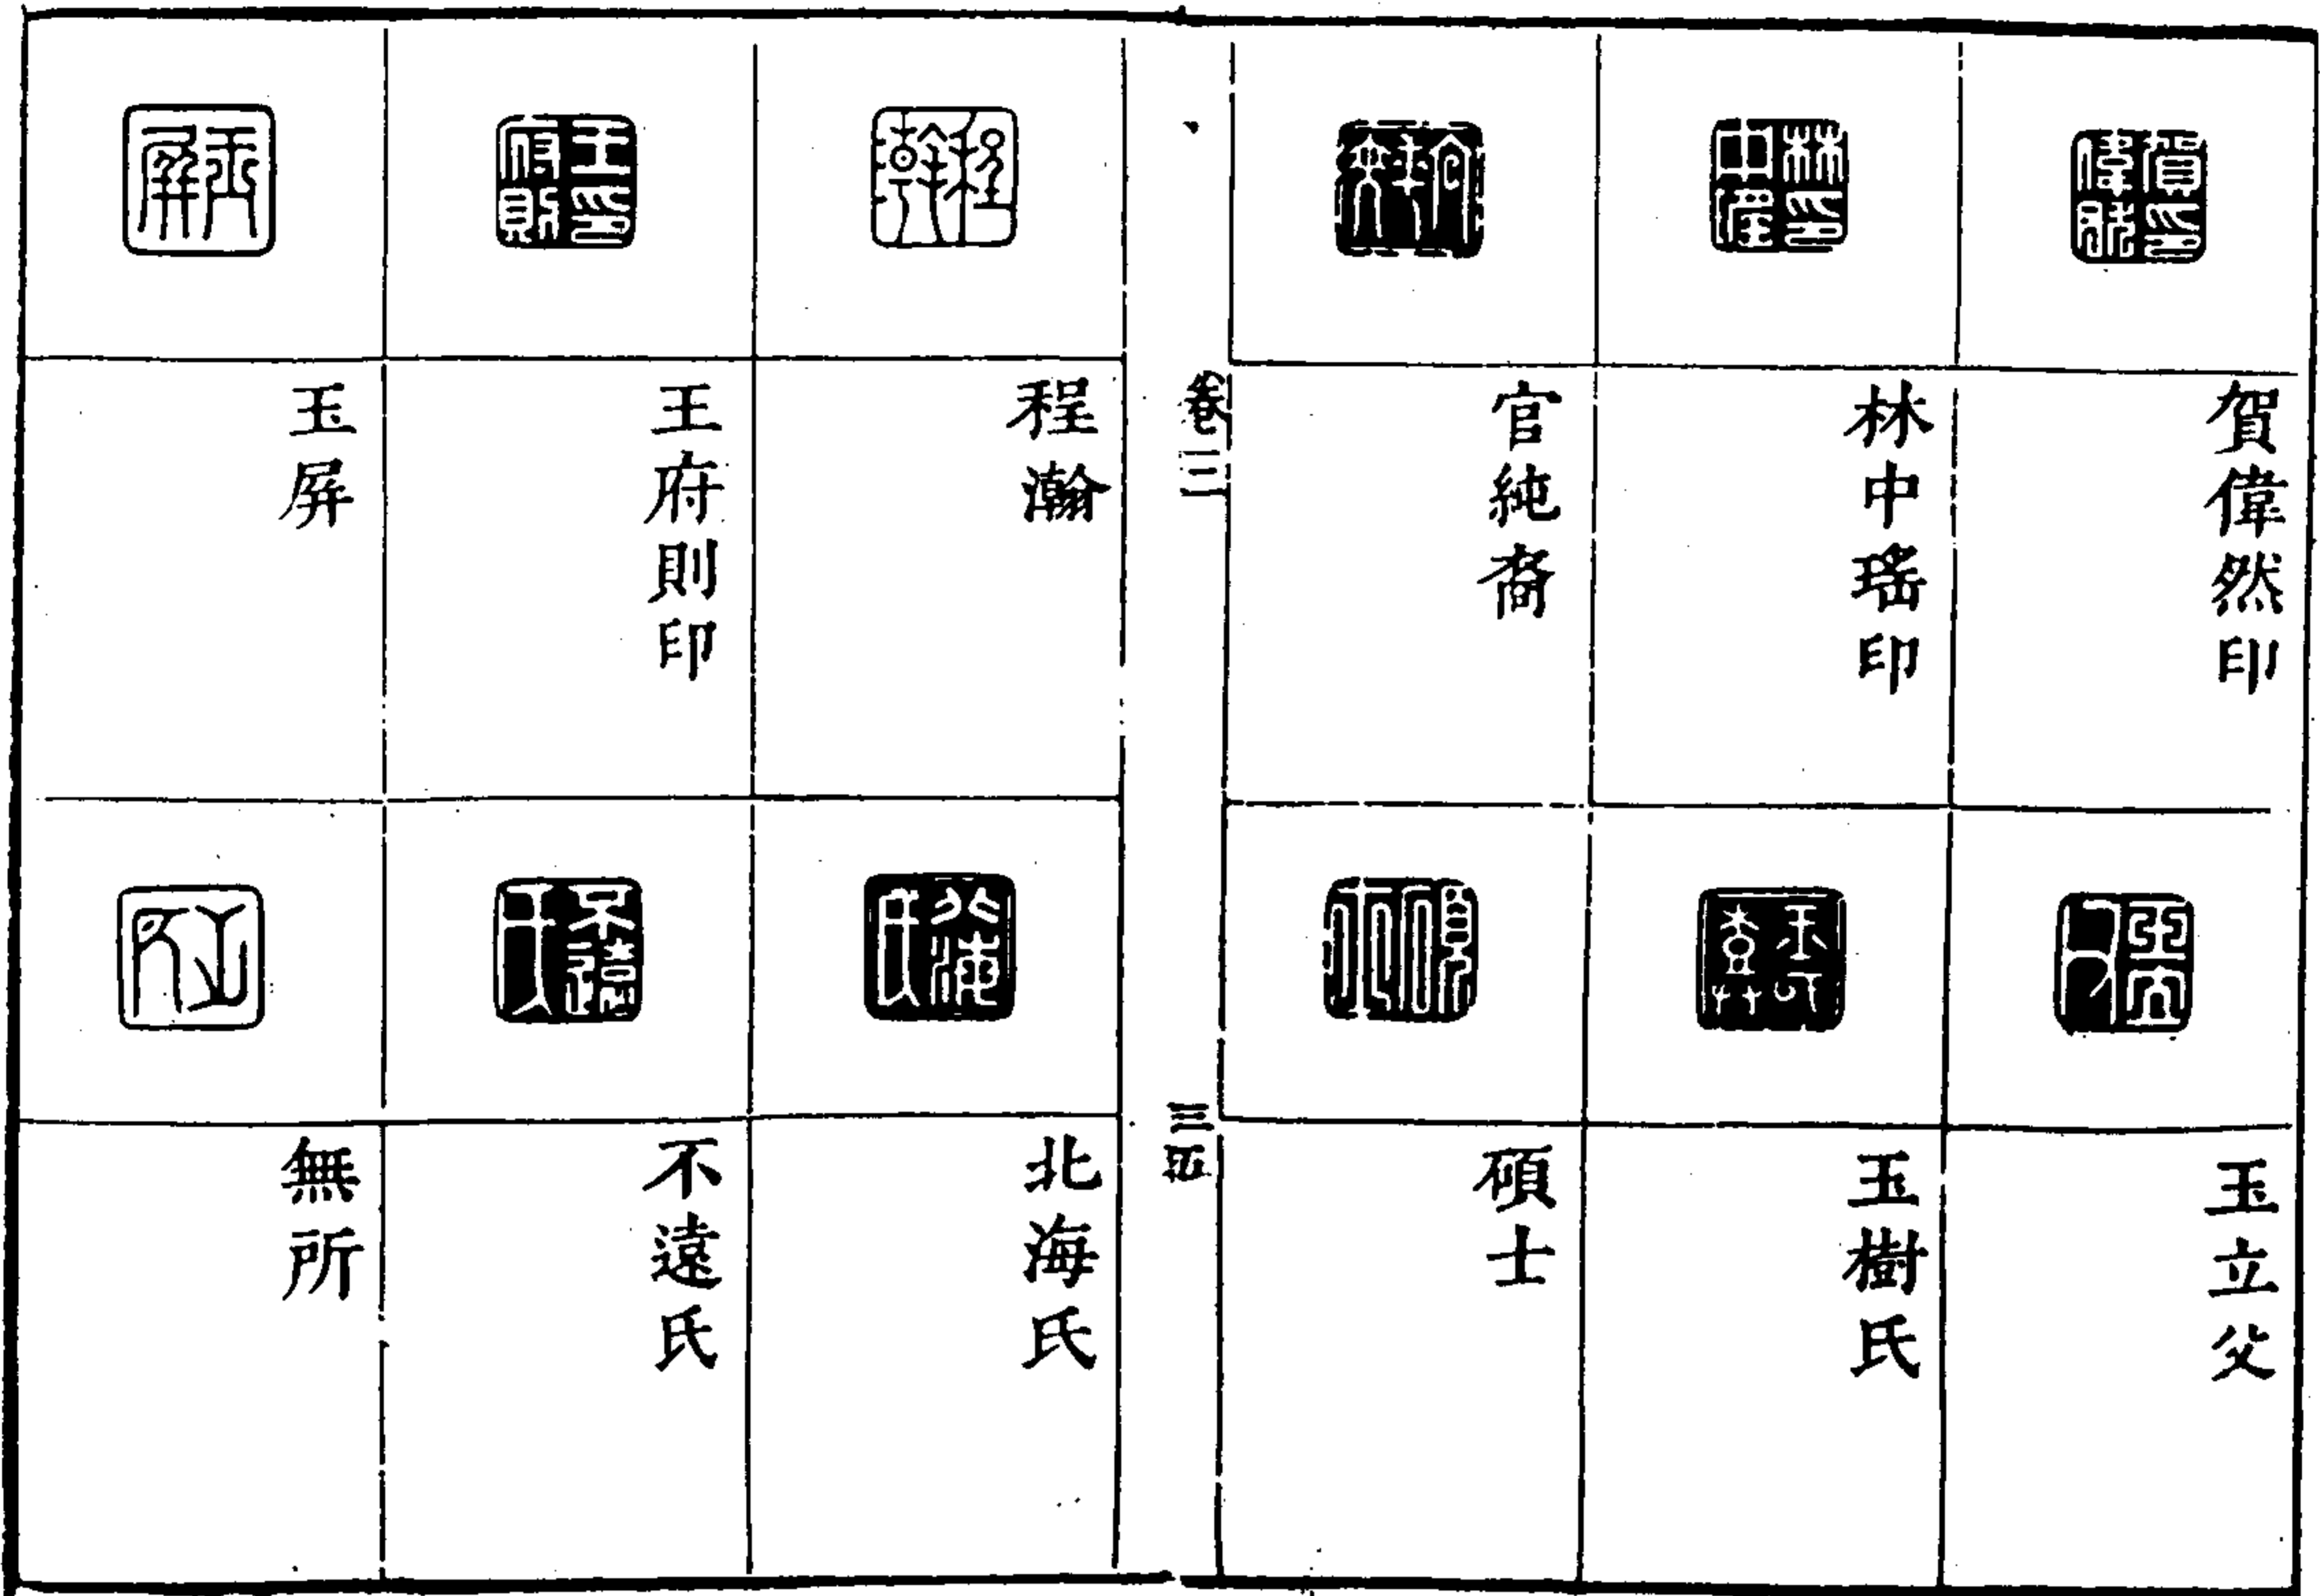 賀偉然印
林中瑤印
官純裔
玉立父
玉樹氏
碩士
卷二
三五
程瀚
王府則印
玉屏
北海氏
不遠氏
無所